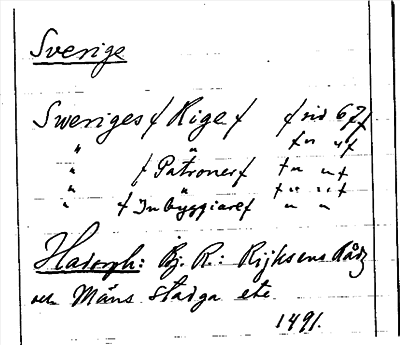 Sverige
Sweriges / Rige / / sid 67 f
" " f " " f
" / Patroner / f " " f
" " f " " f
" / Inbyggiare / " "
Hadorph: Bj. R.: Rijksens Rådz
och Mäns stadga etc
1491.